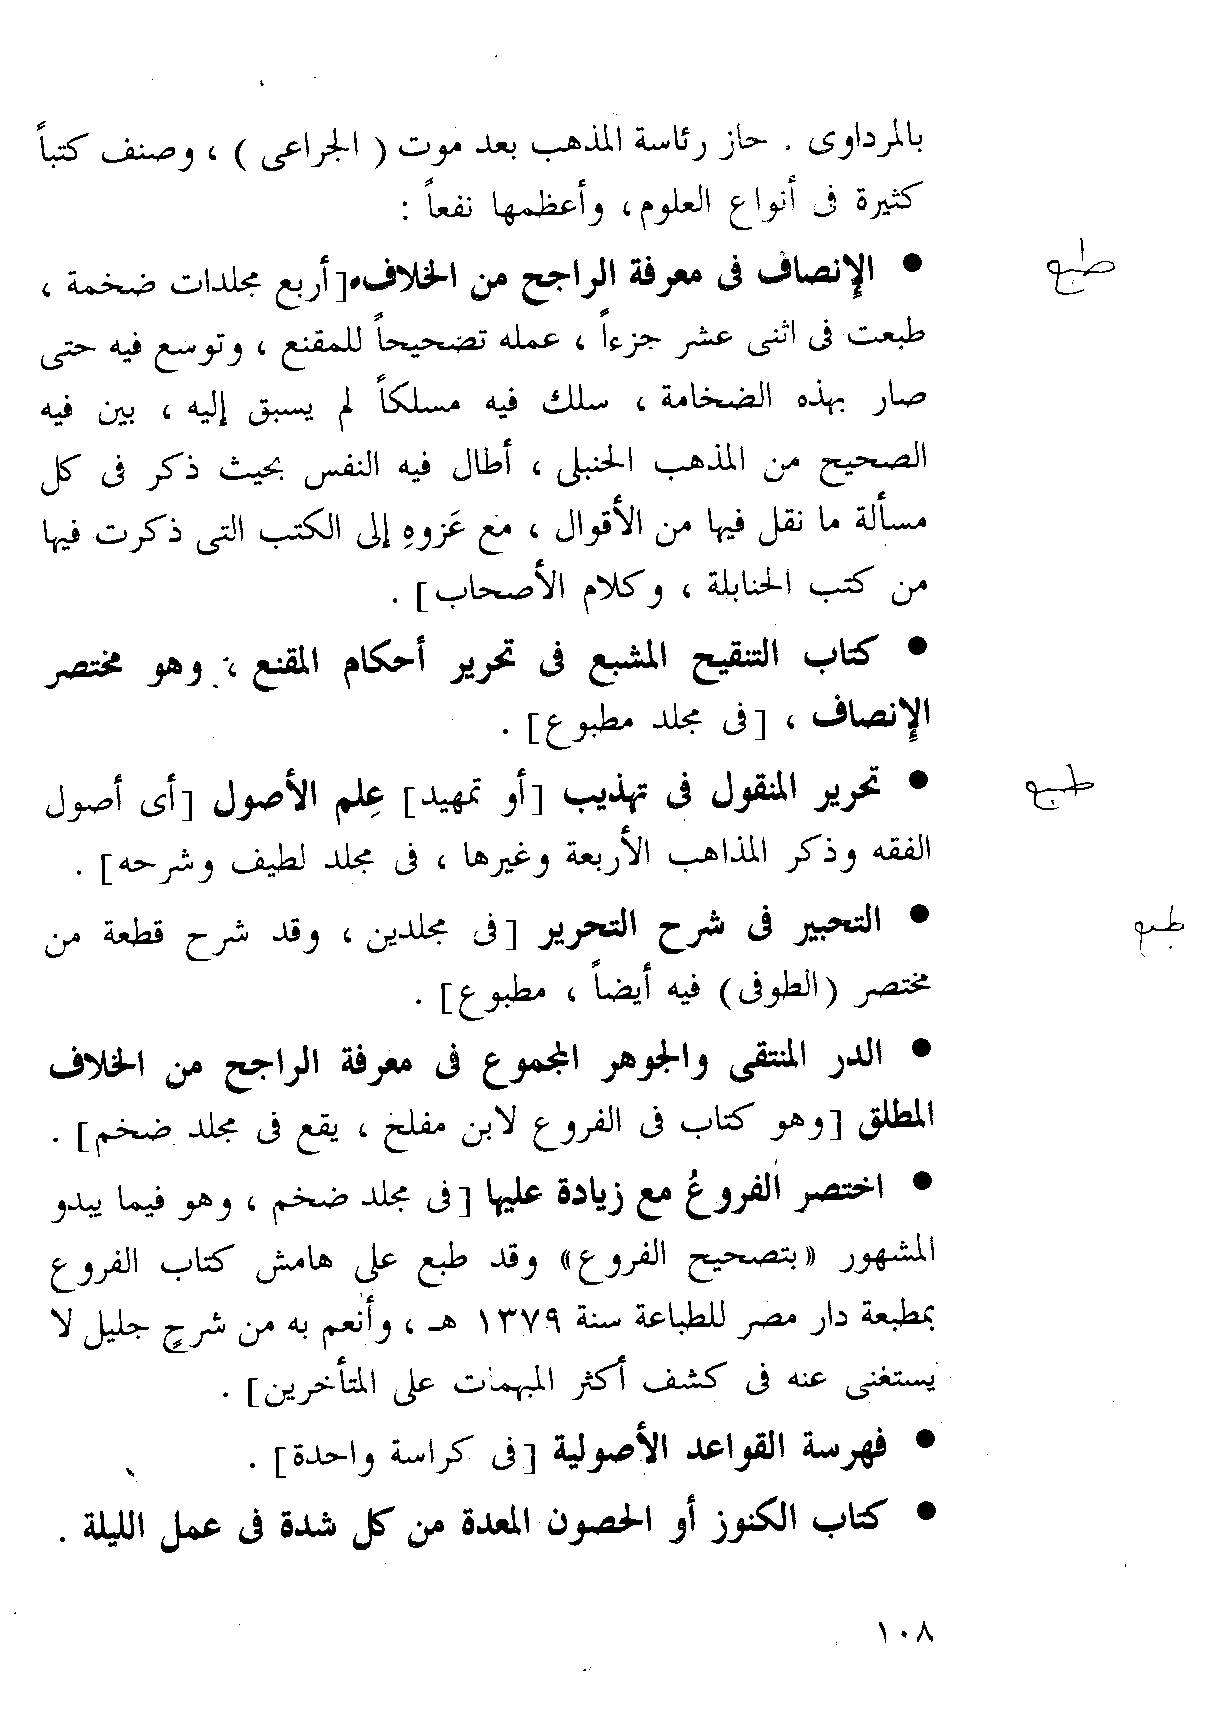 بالمرداوى . حاز رئاسة المذهب بعد موت ( الجراعى ) ، وصنف كتباً
كثيرة فى أنواع العلوم، وأعظمها نفعاً :
● الإنصاف فى معرفة الراجح من الخلاف، [أربع مجلدات ضخمة ،
طبع
طبعت فى اثنى عشر جزءاً ، عمله تضحيحاً للمقنع ، وتوسع فيه حتى
صار بهذه الضخامة ، سلك فيه مسلكاً لم يسبق إليه ، بين فيه
الصحيح من المذهب الحنبلى ، أطال فيه النفس بحيث ذكر فى كل
مسألة ما نقل فيها من الأقوال ، مع عَزوهِ إلى الكتب التى ذكرت فيها
من كتب الحنابلة ، وكلام الأصحاب] .
● كتاب التنقيح المشبع فى تحرير أحكام المقنع ، وهو مختصر
الإنصاف ، [فى مجلد مطبوع] .
● تحرير المنقول فى تهذيب [أو تمهيد] عِلم الأصول [أى أصول
طبع
الفقه وذكر المذاهب الأربعة وغيرها ، فى مجلد لطيف وشرحه] .
● التحبير فى شرح التحرير [فى مجلدين ، وقد شرح قطعة من
طبع
مختصر (الطوفى) فيه أيضاً ، مطبوع] .
● الدر المنتقى والجوهر المجموع فى معرفة الراجح من الخلاف
المطلق [وهو كتاب فى الفروع لابن مفلح ، يقع فى مجلد ضخم] .
● اختصر الفروعُ مع زيادة عليها [فى مجلد ضخم ، وهو فيما يبدو
المشهور «بتصحيح الفروع» وقد طبع على هامش كتاب الفروع
بمطبعة دار مصر للطباعة سنة ١٣٧٩ هـ ، وأنعم به من شرحٍ جليل لا
يستغنى عنه فى كشف أكثر المبهمات على المتأخرين] .
● فهرسة القواعد الأصولية [فى كراسة واحدة] .
● كتاب الكنوز أو الحصون المعدة من كل شدة فى عمل الليلة .
١٠٨